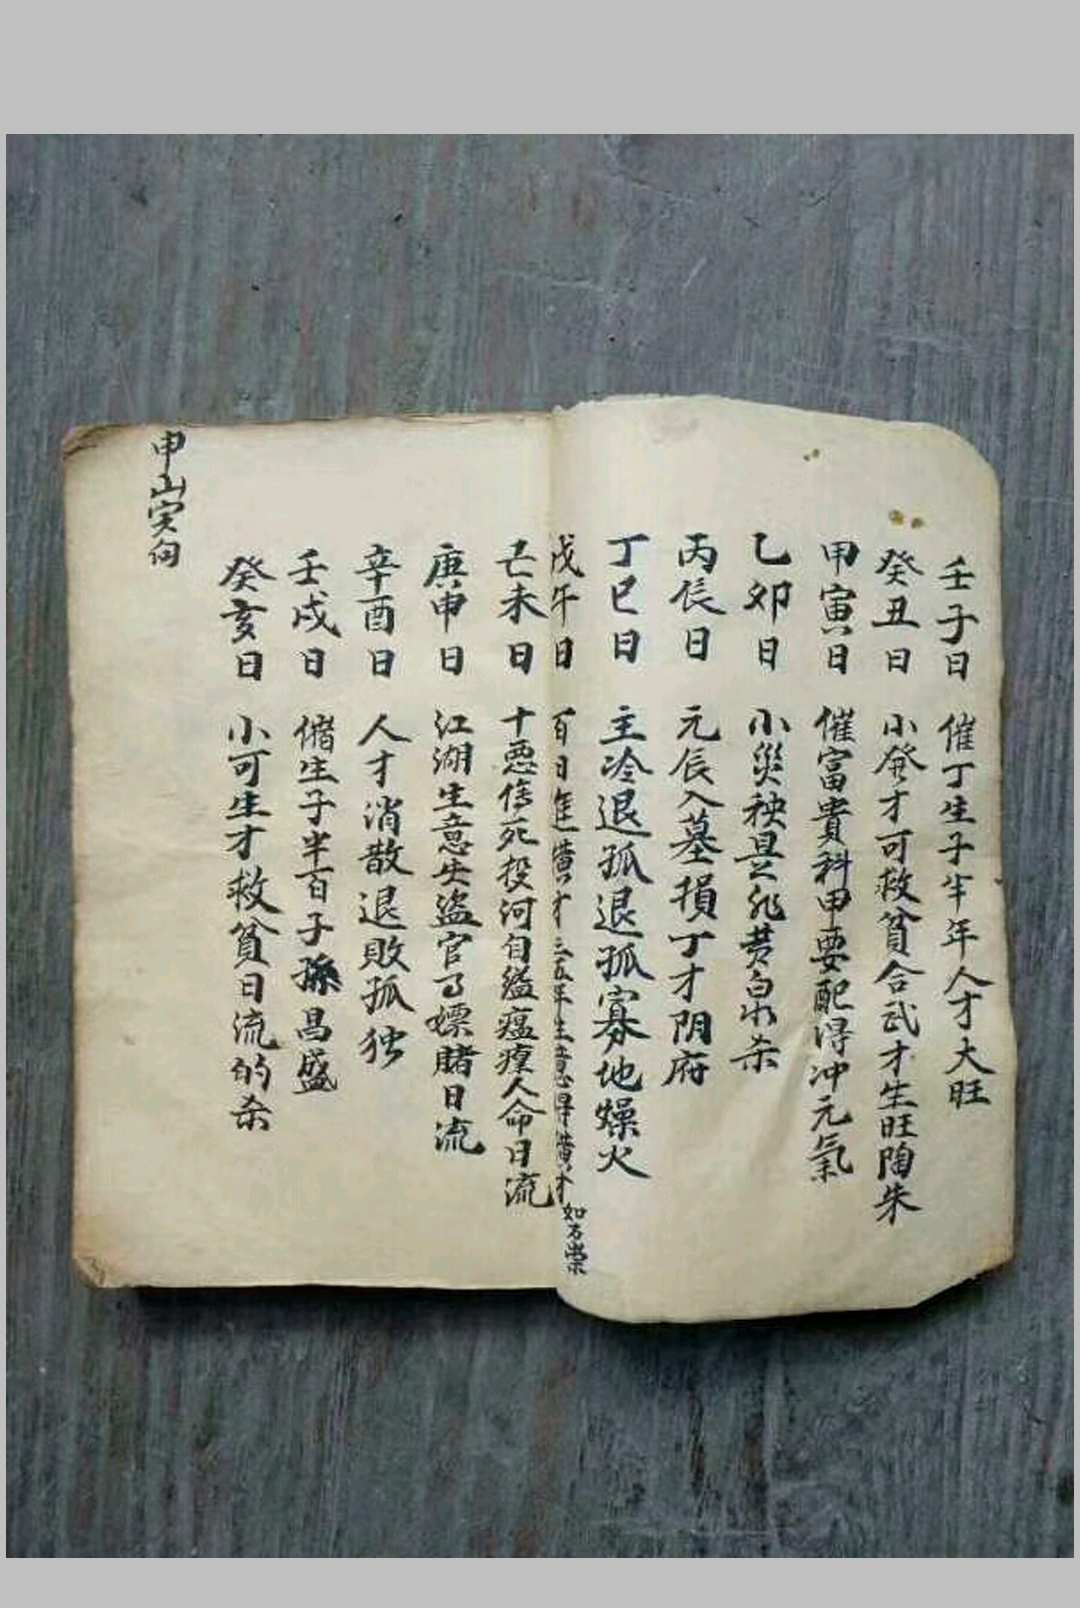 壬子日 催丁生子半年人才大旺
癸丑日 小發才可救貧合武才生旺陶朱
甲寅日 催富貴科甲要配得冲元氣
乙卯日 小災秧是非黄泉水杀
丙辰日 元辰入墓損丁才阴府
丁巳日 主冷退孤退孤寡地燥火
戊午日 百日進横才三五年生意得横才
己未日 十恶傷死投河自縊瘟㾮人命日流
庚申日 江湖生意失盜官了嫖賭日流
辛酉日 人才消散退敗孤独
壬戌日 催生子半百子孫昌盛
癸亥日 小可生才救貧日流的杀
申山寅向